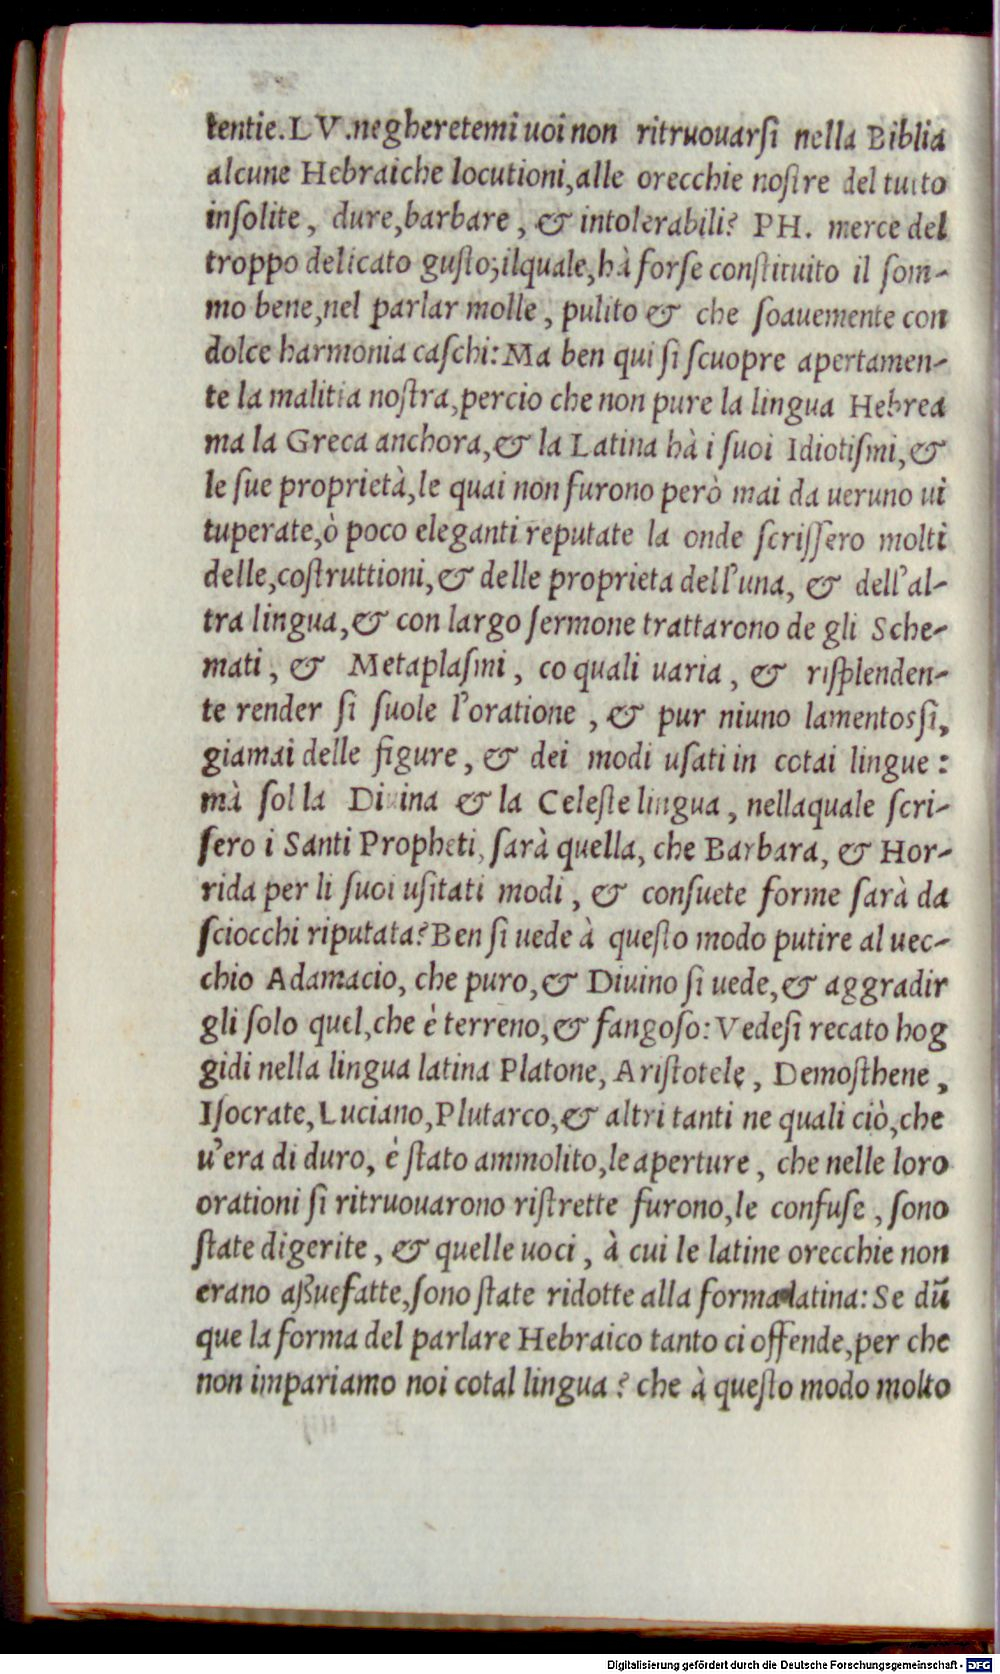 tentie. LV. negheretemi uoi non ritruouarsi nella Biblia
alcune Hebraiche locutioni, alle orecchie nostre del tutto
insolite, dure, barbare, & intolerabili? PH. merce del
troppo delicato gusto; ilquale, hà forse constituito il som-
mo bene, nel parlar molle, pulito & che soauemente con
dolce harmonia caschi: Ma ben qui si scuopre apertamen-
te la malitia nostra, percio che non pure la lingua Hebrea
ma la Greca anchora, & la Latina hà i suoi Idiotismi, &
le sue proprietà, le quai non furono però mai da ueruno ui
tuperate, ò poco eleganti reputate la onde scrissero molti
delle, costruttioni, & delle proprieta dell'una, & dell'al-
tra lingua, & con largo sermone trattarono de gli Sche-
mati, & Metaplasmi, co quali uaria, & risplenden-
te render si suole l'oratione, & pur niuno lamentossi,
giamai delle figure, & dei modi usati in cotai lingue:
mà sol la Diuina & la Celeste lingua, nellaquale scri-
sero i Santi Propheti, sarà quella, che Barbara, & Hor-
rida per li suoi usitati modi, & consuete forme sarà da
sciocchi riputata? Ben si uede à questo modo putire al uec-
chio Adamacio, che puro, & Diuino si uede, & aggradir
gli solo quel, che è terreno, & fangoso: Vedesi recato hog
gidi nella lingua latina Platone, Aristotele, Demosthene,
Isocrate, Luciano, Plutarco, & altri tanti ne quali ciò, che
u'era di duro, è stato ammolito, le aperture, che nelle loro
orationi si ritruouarono ristrette furono, le confuse, sono
state digerite, & quelle uoci, à cui le latine orecchie non
erano aßuefatte, sono state ridotte alla forma latina: Se dũ
que la forma del parlare Hebraico tanto ci offende, per che
non impariamo noi cotal lingua? che à questo modo molto
Digitalisierung gefördert durch die Deutsche Forschungsgemeinschaft - DFG